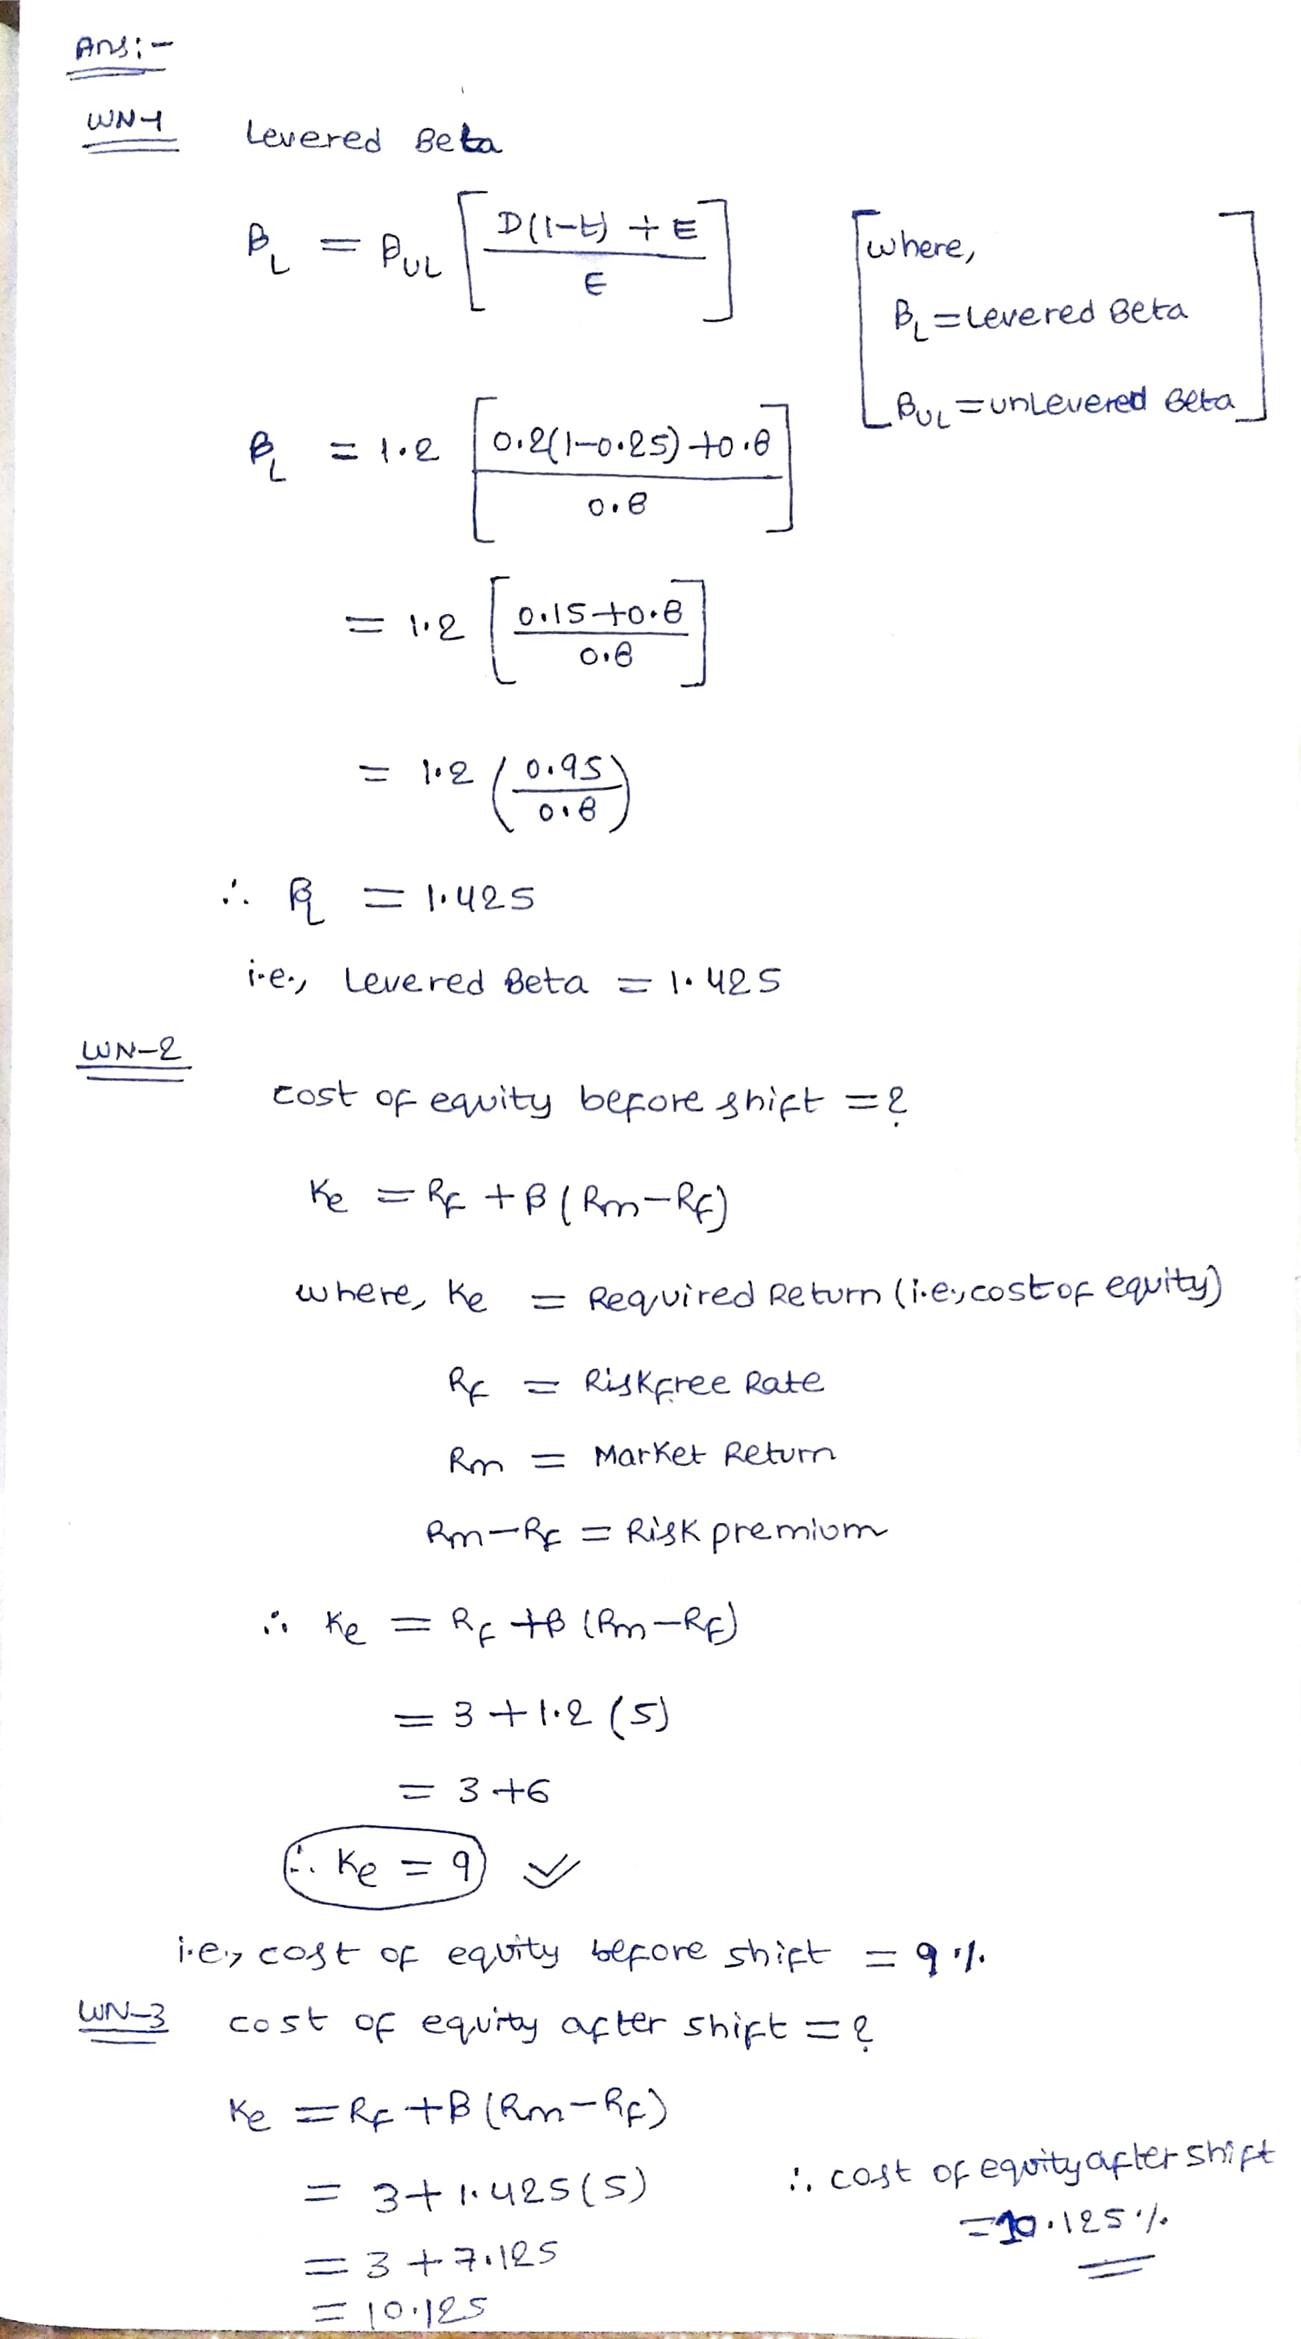 Ans:-
WN-1 Levered Beta
βL = βUL [D(1-t) + E / E]
[where,
βL = Levered Beta
βUL = unLevered Beta]
βL = 1.2 [0.2(1-0.25) + 0.8 / 0.8]
= 1.2 [0.15 + 0.8 / 0.8]
= 1.2 (0.95 / 0.8)
∴ βL = 1.425
i.e., Levered Beta = 1.425
WN-2
Cost of equity before shift = ?
Ke = Rf + β (Rm - Rf)
where, Ke = Required Return (i.e., cost of equity)
Rf = Risk free Rate
Rm = Market Return
Rm - Rf = Risk premium
∴ Ke = Rf + β (Rm - Rf)
= 3 + 1.2 (5)
= 3 + 6
∴ Ke = 9
i.e., cost of equity before shift = 9%
WN-3 cost of equity after shift = ?
Ke = Rf + β (Rm - Rf)
= 3 + 1.425 (5)
= 3 + 7.125
= 10.125
∴ cost of equity after shift
= 10.125%